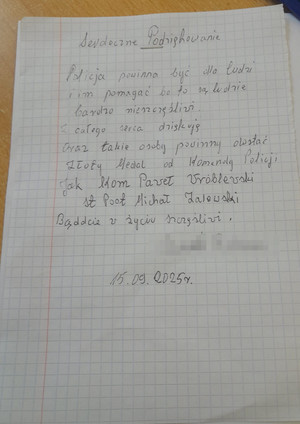 Serdeczne Podziękowanie
Policja powinna być dla ludzi
i im pomagać bo to są ludzie
bardzo nieszczęśliwi.
Z całego serca dziękuję
Oraz takie osoby powinny dostać
Złoty Medal od Komendy Policji
Jak Kom Paveł Vróblevski
st Post Michał Zalewski
Bąddzie v życiu szczęślivi.
15.09.2025r.